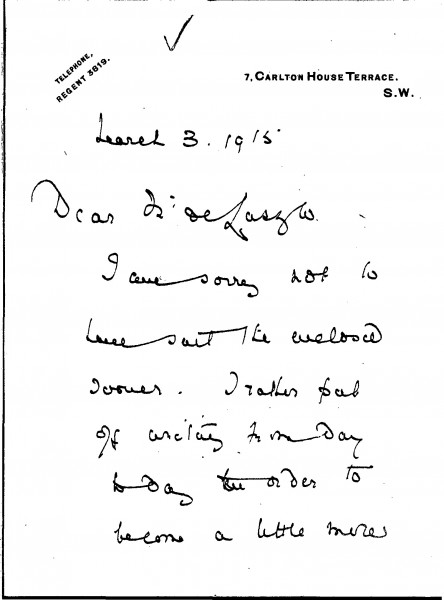 TELEPHONE,
REGENT 3819.
7, CARLTON HOUSE TERRACE.
S.W.
March 3. 1915
Dear Mr de Laszlo.
I am sorry not to
have sent the enclosed
sooner. I rather put
off writing from day
to day in order to
become a little more